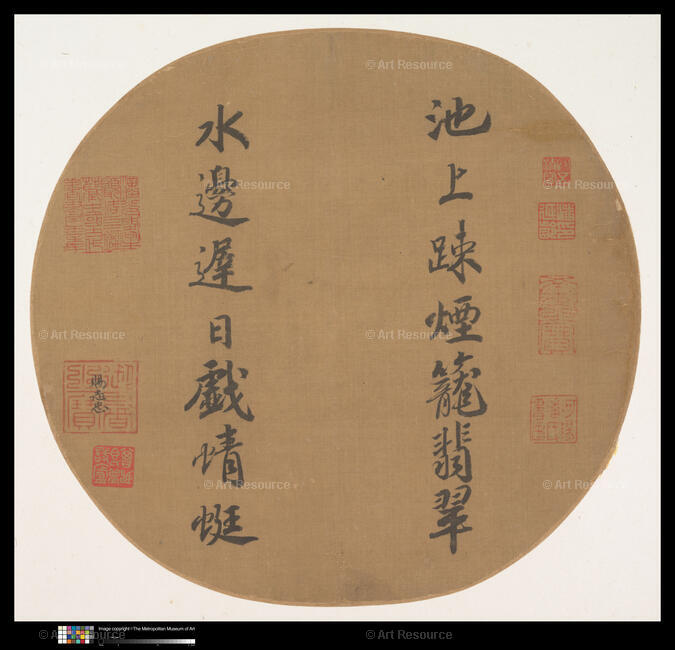 池上踈煙籠翡翠
水邊遲日戯蜻蜓
賜志忠
© Art Resource
© Art Resource
© Art Resource
© Art Resource
© Art Resource
© Art Resource
© Art Resource
© Art Resource
© Art Resource
© Art Resource
Image copyright © The Metropolitan Museum of Art